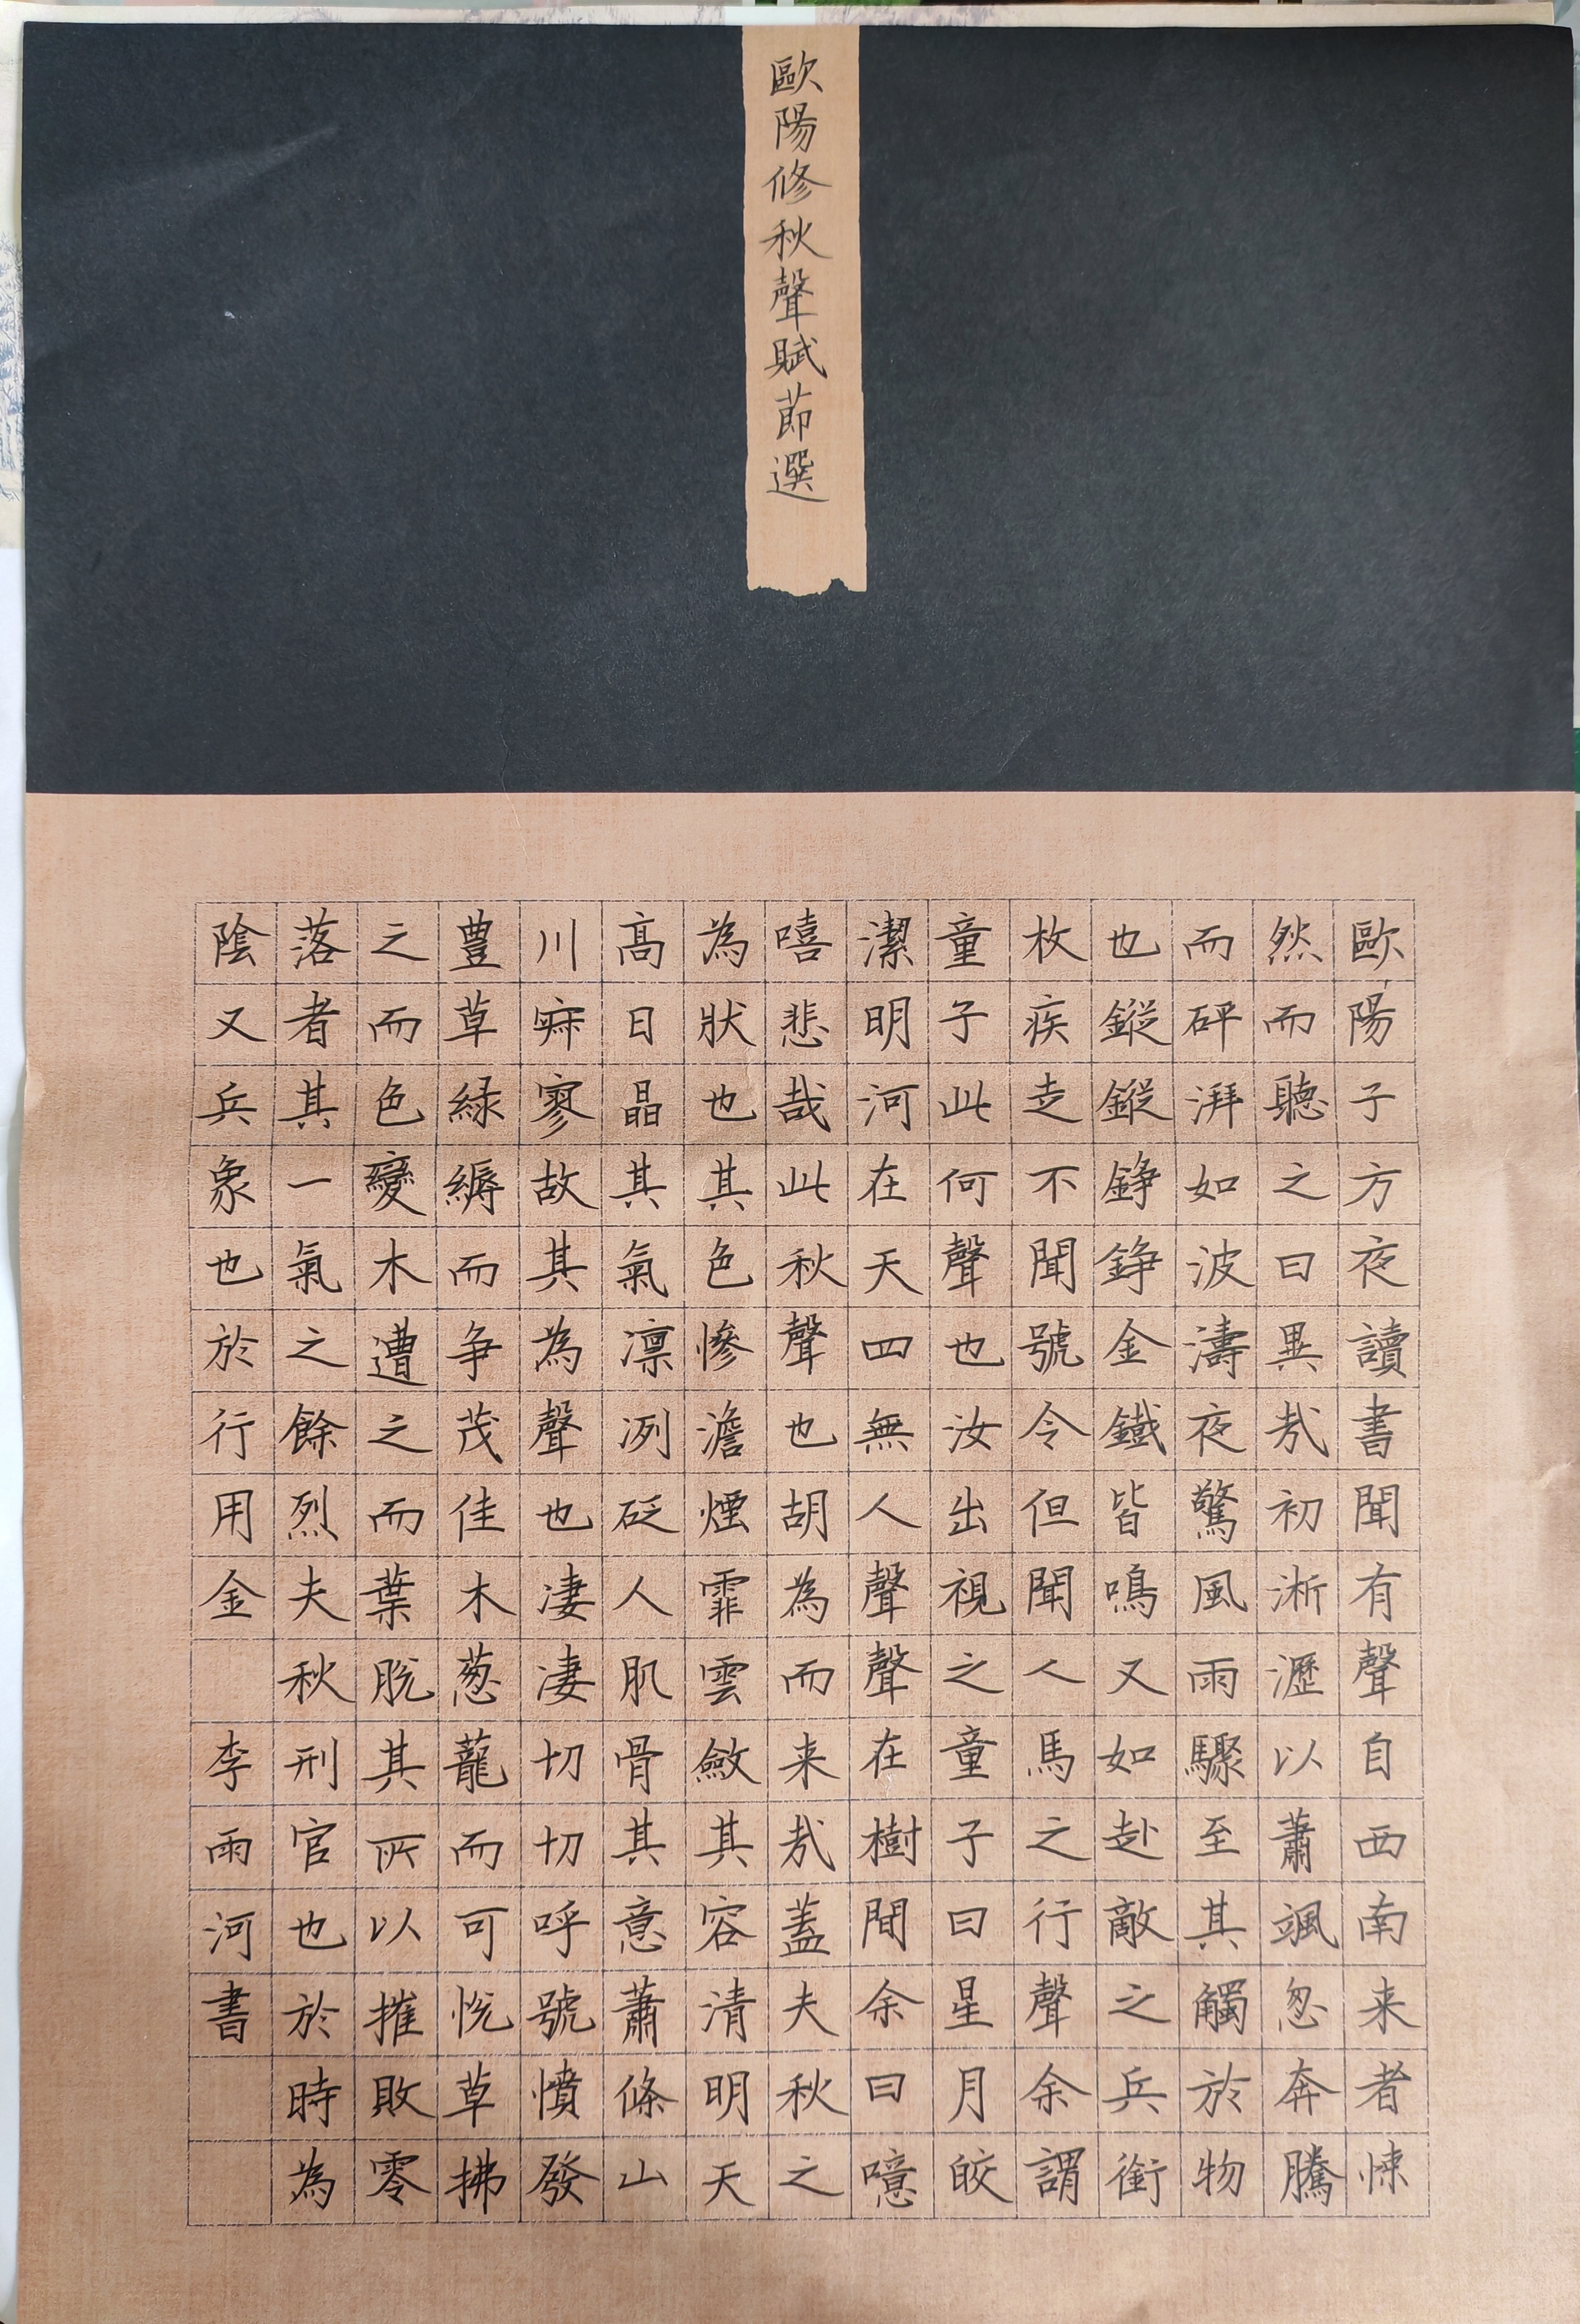 歐陽修秋聲賦節選
歐陽子方夜讀書聞有聲自西南来者悚
然而聽之曰異哉初淅瀝以蕭颯忽奔騰
而砰湃如波濤夜驚風雨驟至其觸於物
也鏦鏦錚錚金鐵皆鳴又如赴敵之兵銜
枚疾走不聞號令但聞人馬之行聲余謂
童子此何聲也汝出視之童子曰星月皎
潔明河在天四無人聲聲在樹間余曰噫
嘻悲哉此秋聲也胡為而来哉蓋夫秋之
為狀也其色慘澹煙霏雲斂其容清明天
高日晶其氣凛冽砭人肌骨其意蕭條山
川寂寥故其為聲也凄凄切切呼號憤發
豊草緑縟而争茂佳木葱蘢而可悦草拂
之而色變木遭之而葉脱其所以摧敗零
落者其一氣之餘烈夫秋刑官也於時為
陰又兵象也於行用金 李雨河書